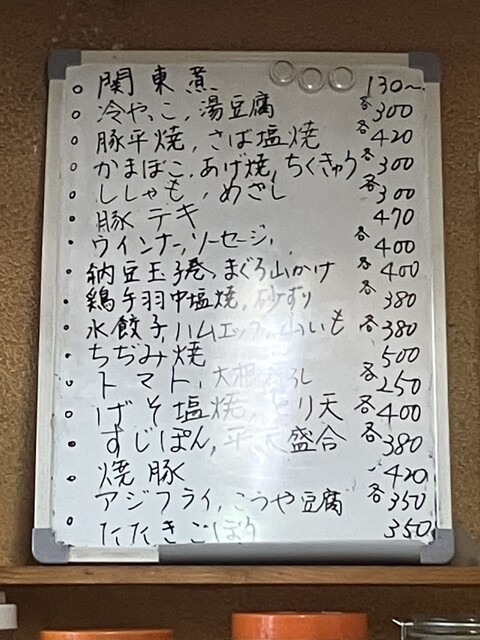 ○ 関東煮 130〜
○ 冷やっこ, 湯豆腐 各300
○ 豚平焼, さば塩焼 各420
○ かまぼこ, あげ焼, ちくきゅう 各300
○ ししゃも, めざし 各300
○ 豚テキ 470
○ ウインナー, ソーセージ, 各400
○ 納豆玉子巻, まぐろ山かけ 各400
○ 鶏手羽中塩焼, 砂ずり 各380
○ 水餃子, ハムエッグ, 山いも 各380
○ ちぢみ焼 500
○ トマト, 大根おろし 各250
○ げそ塩焼, とり天 各400
○ すじぽん, 平天盛合 各380
○ 焼豚 420
○ アジフライ, こうや豆腐 各350
○ たたきごぼう 350